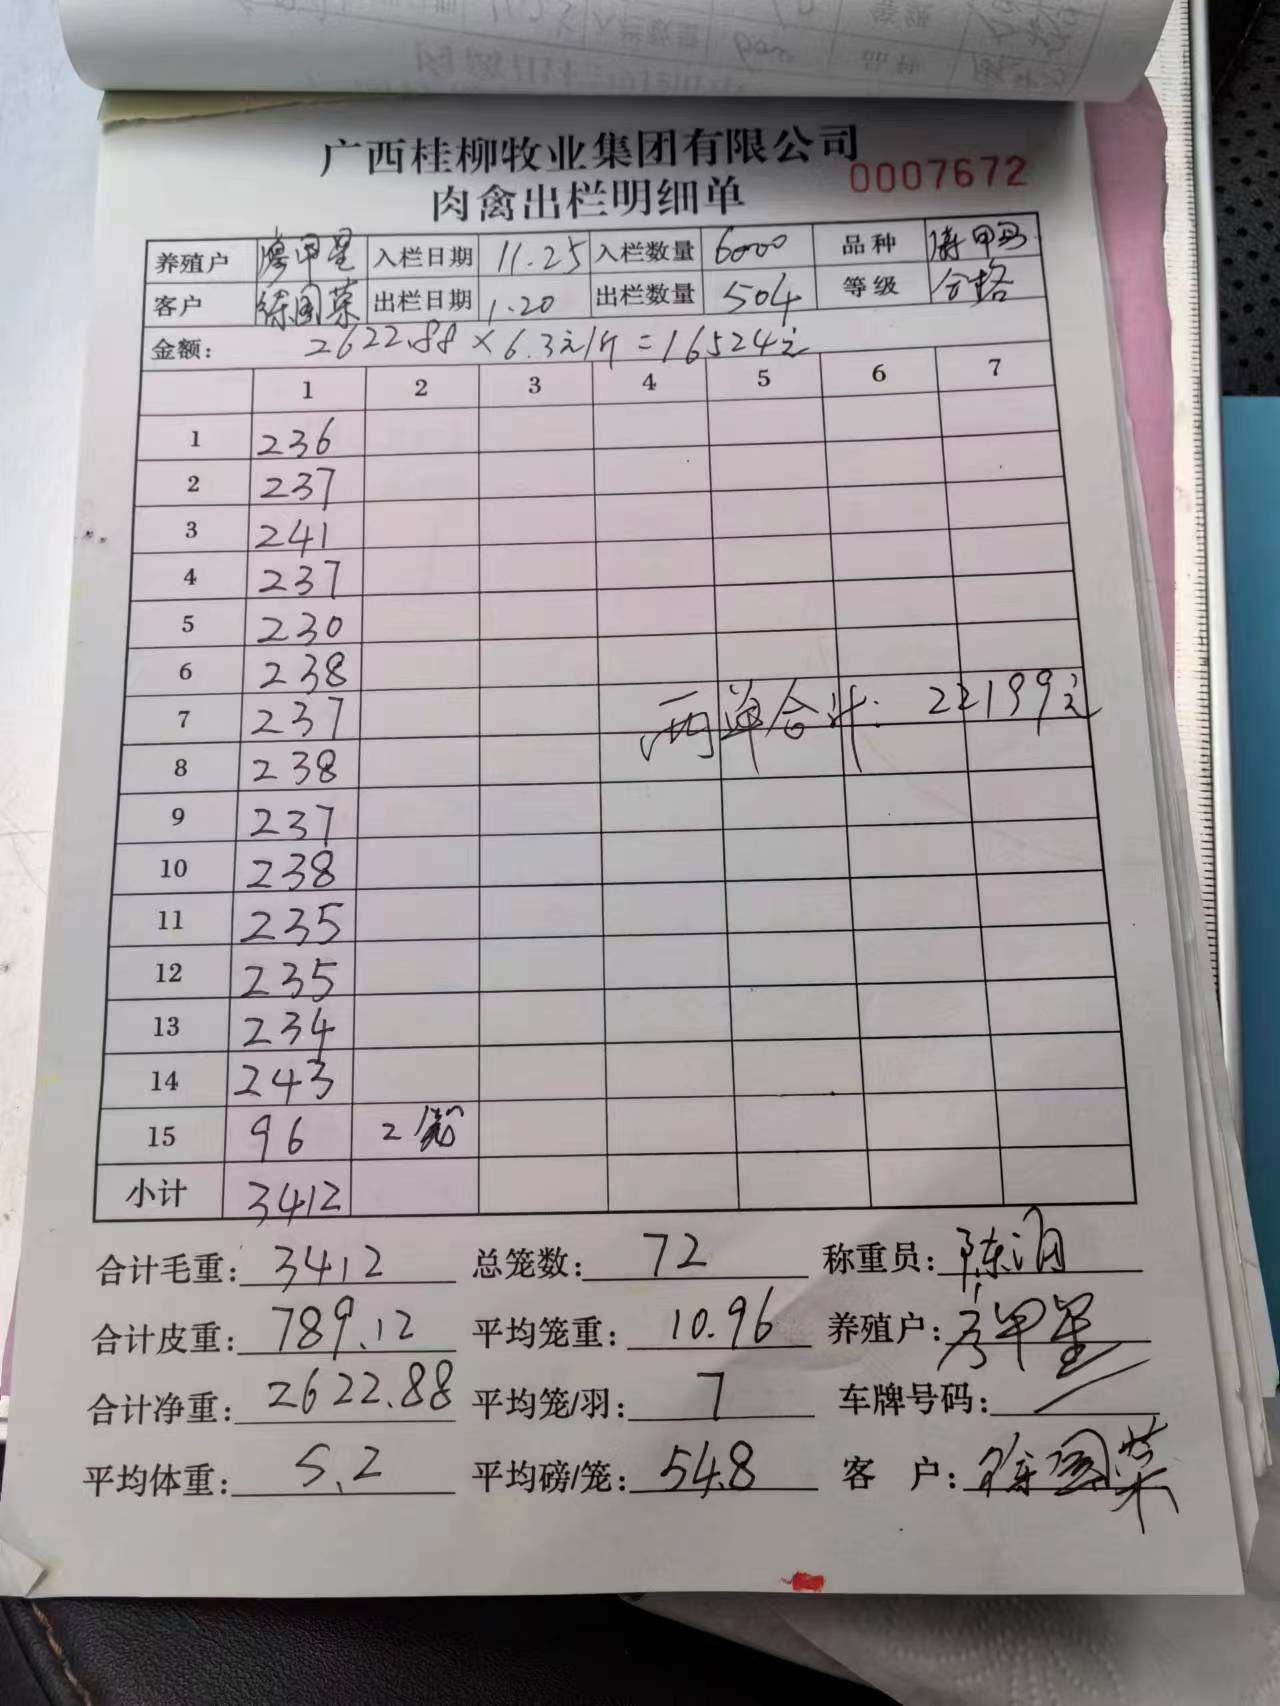 广西桂柳牧业集团有限公司
0007672
肉禽出栏明细单
养殖户 廖甲星 入栏日期 11.25 入栏数量 6000 品种
客户 陈国荣 出栏日期 1.20 出栏数量 504 等级 合格
金额: 2622.88×6.3元/斤=16524元
1 2 3 4 5 6 7
1 236
2 237
3 241
4 237
5 230
6 238
7 237
两单合计: 22199元
8 238
9 237
10 238
11 235
12 235
13 234
14 243
15 96 2笼
小计 3412
合计毛重: 3412 总笼数: 72 称重员:
合计皮重: 789.12 平均笼重: 10.96 养殖户: 廖甲星
合计净重: 2622.88 平均笼/羽: 7 车牌号码:
平均体重: 5.2 平均磅/笼: 54.8 客户: 陈国荣